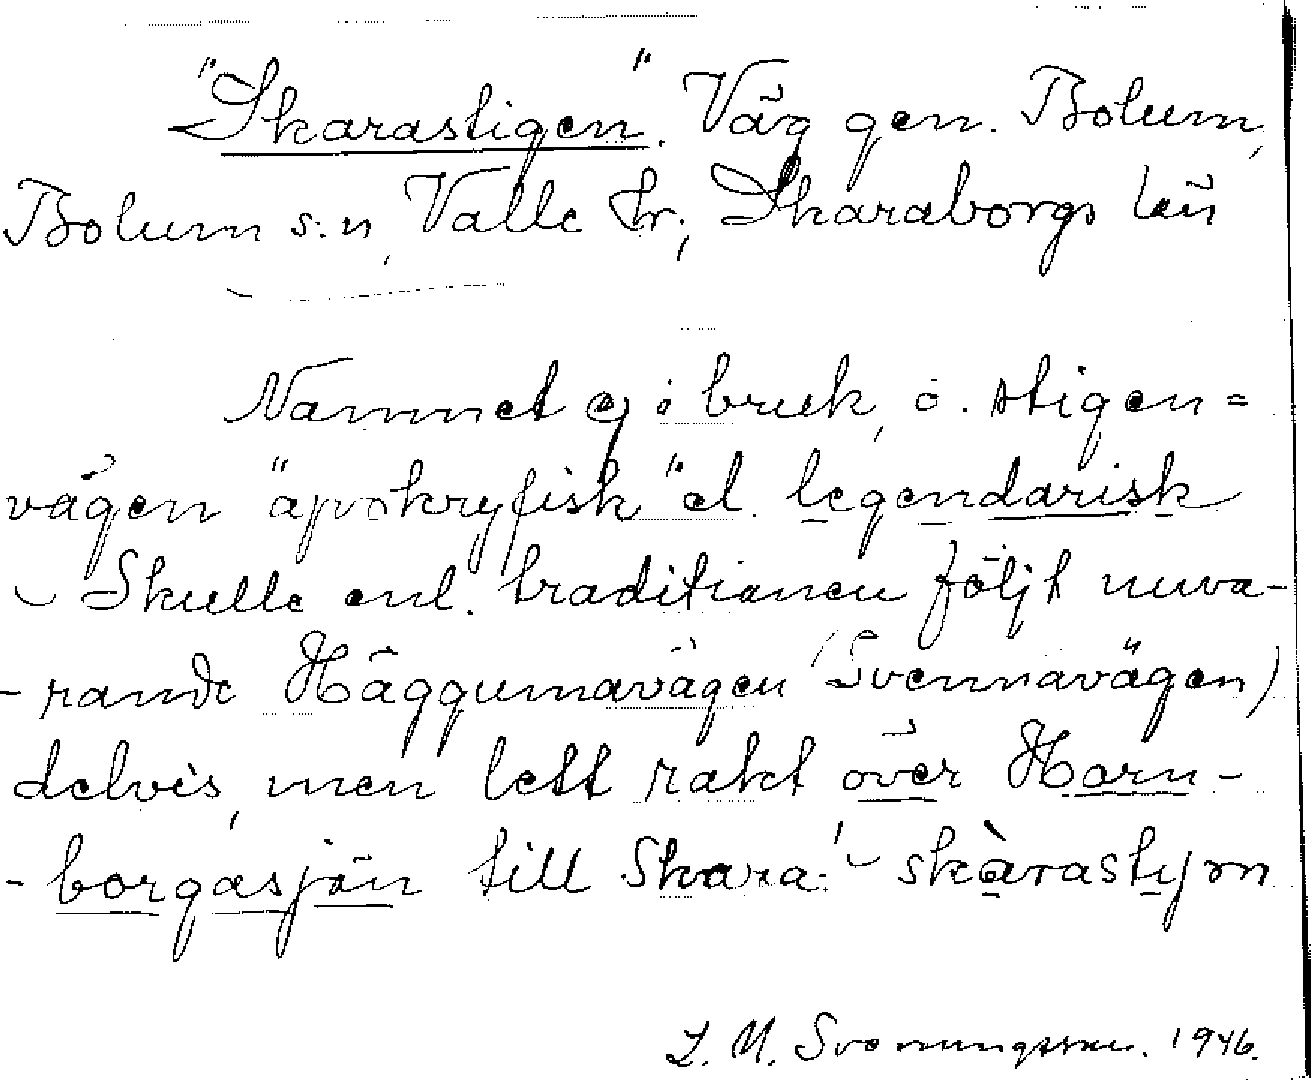 "Skarastigen". Väg gen. Bolum,
Bolum s:n, Valle hr; Skaraborgs län
Namnet ej i bruk, o. stigen=
vägen "apokryfisk" el. legendarisk
- Skulle enl. traditionen följt nuva-
-rande Häggumavägen (Svennavägen)
delvis, men lett rakt över Horn-
-borgasjön till Skara! - skàrastɩjrn
L. M. Svenungsson. 1946.